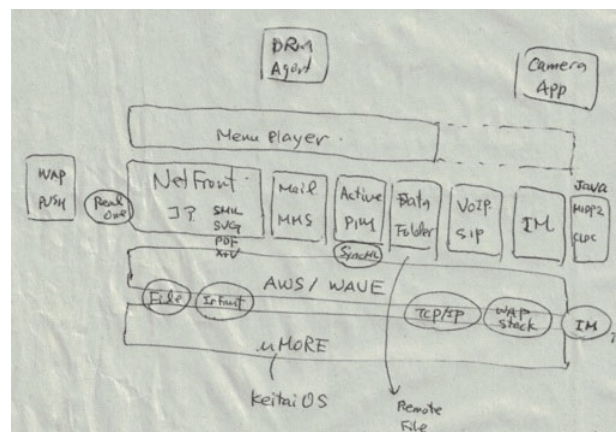 DRM
Agent
Camera
App
Menu Player.
WAP
PUSH
Real
One
NetFront.
J?
SMIL
SVG
PDF
X+V
Mail
MMS
Active
PIM
SyncML
Data
Folder
VoIP
SIP
IM
Java
MIDP2
CLDC
AWS / WAVE
File
TCP/IP
WAP
Stack
IM
?
μMORE
Keitai OS
Remote
File